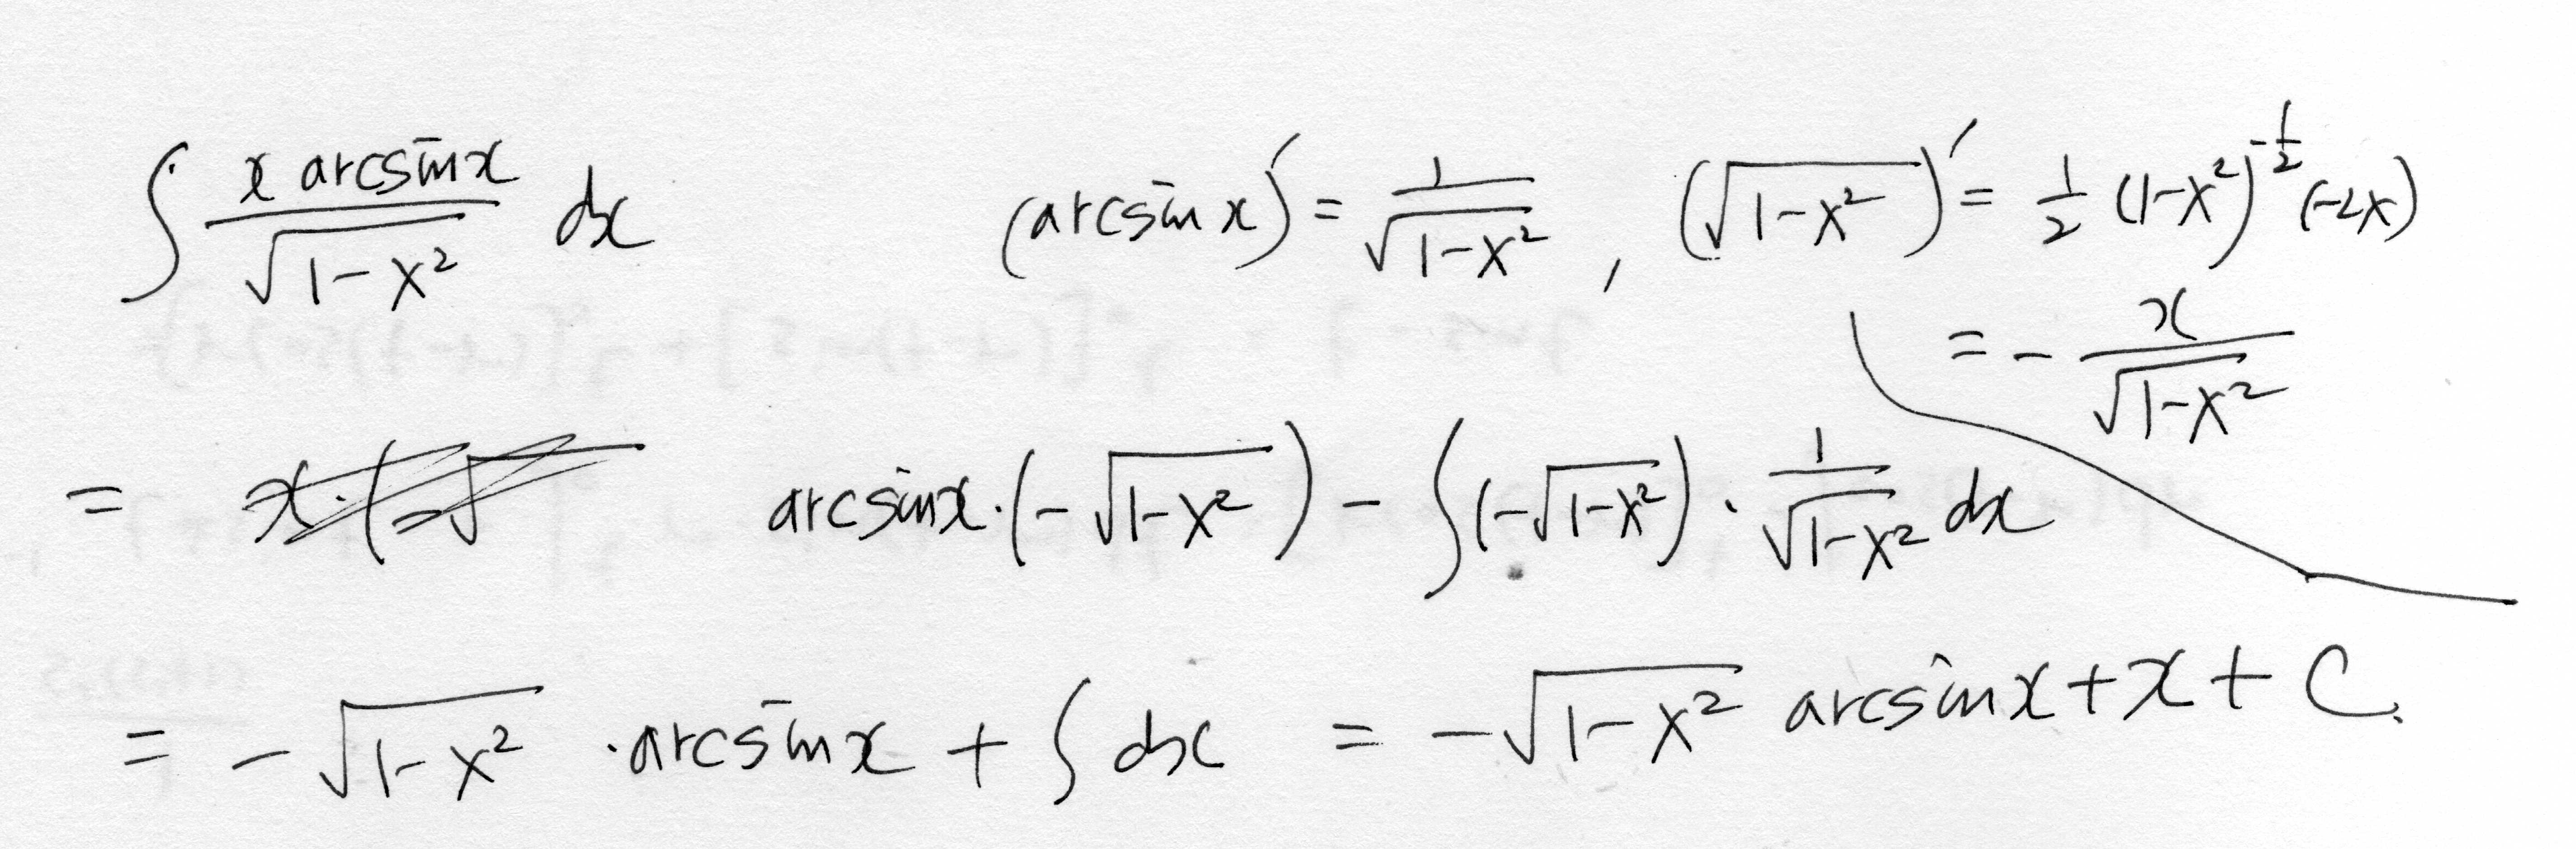 ∫ x arcsin x / √(1-x²) dx    (arcsin x)′ = 1/√(1-x²) , (√(1-x²))′ = 1/2 (1-x²)^(-1/2) (-2x)
= - x/√(1-x²)
= arcsin x · (-√(1-x²)) - ∫(-√(1-x²)) · 1/√(1-x²) dx
= -√(1-x²) · arcsin x + ∫ dx = -√(1-x²) arcsin x + x + C.